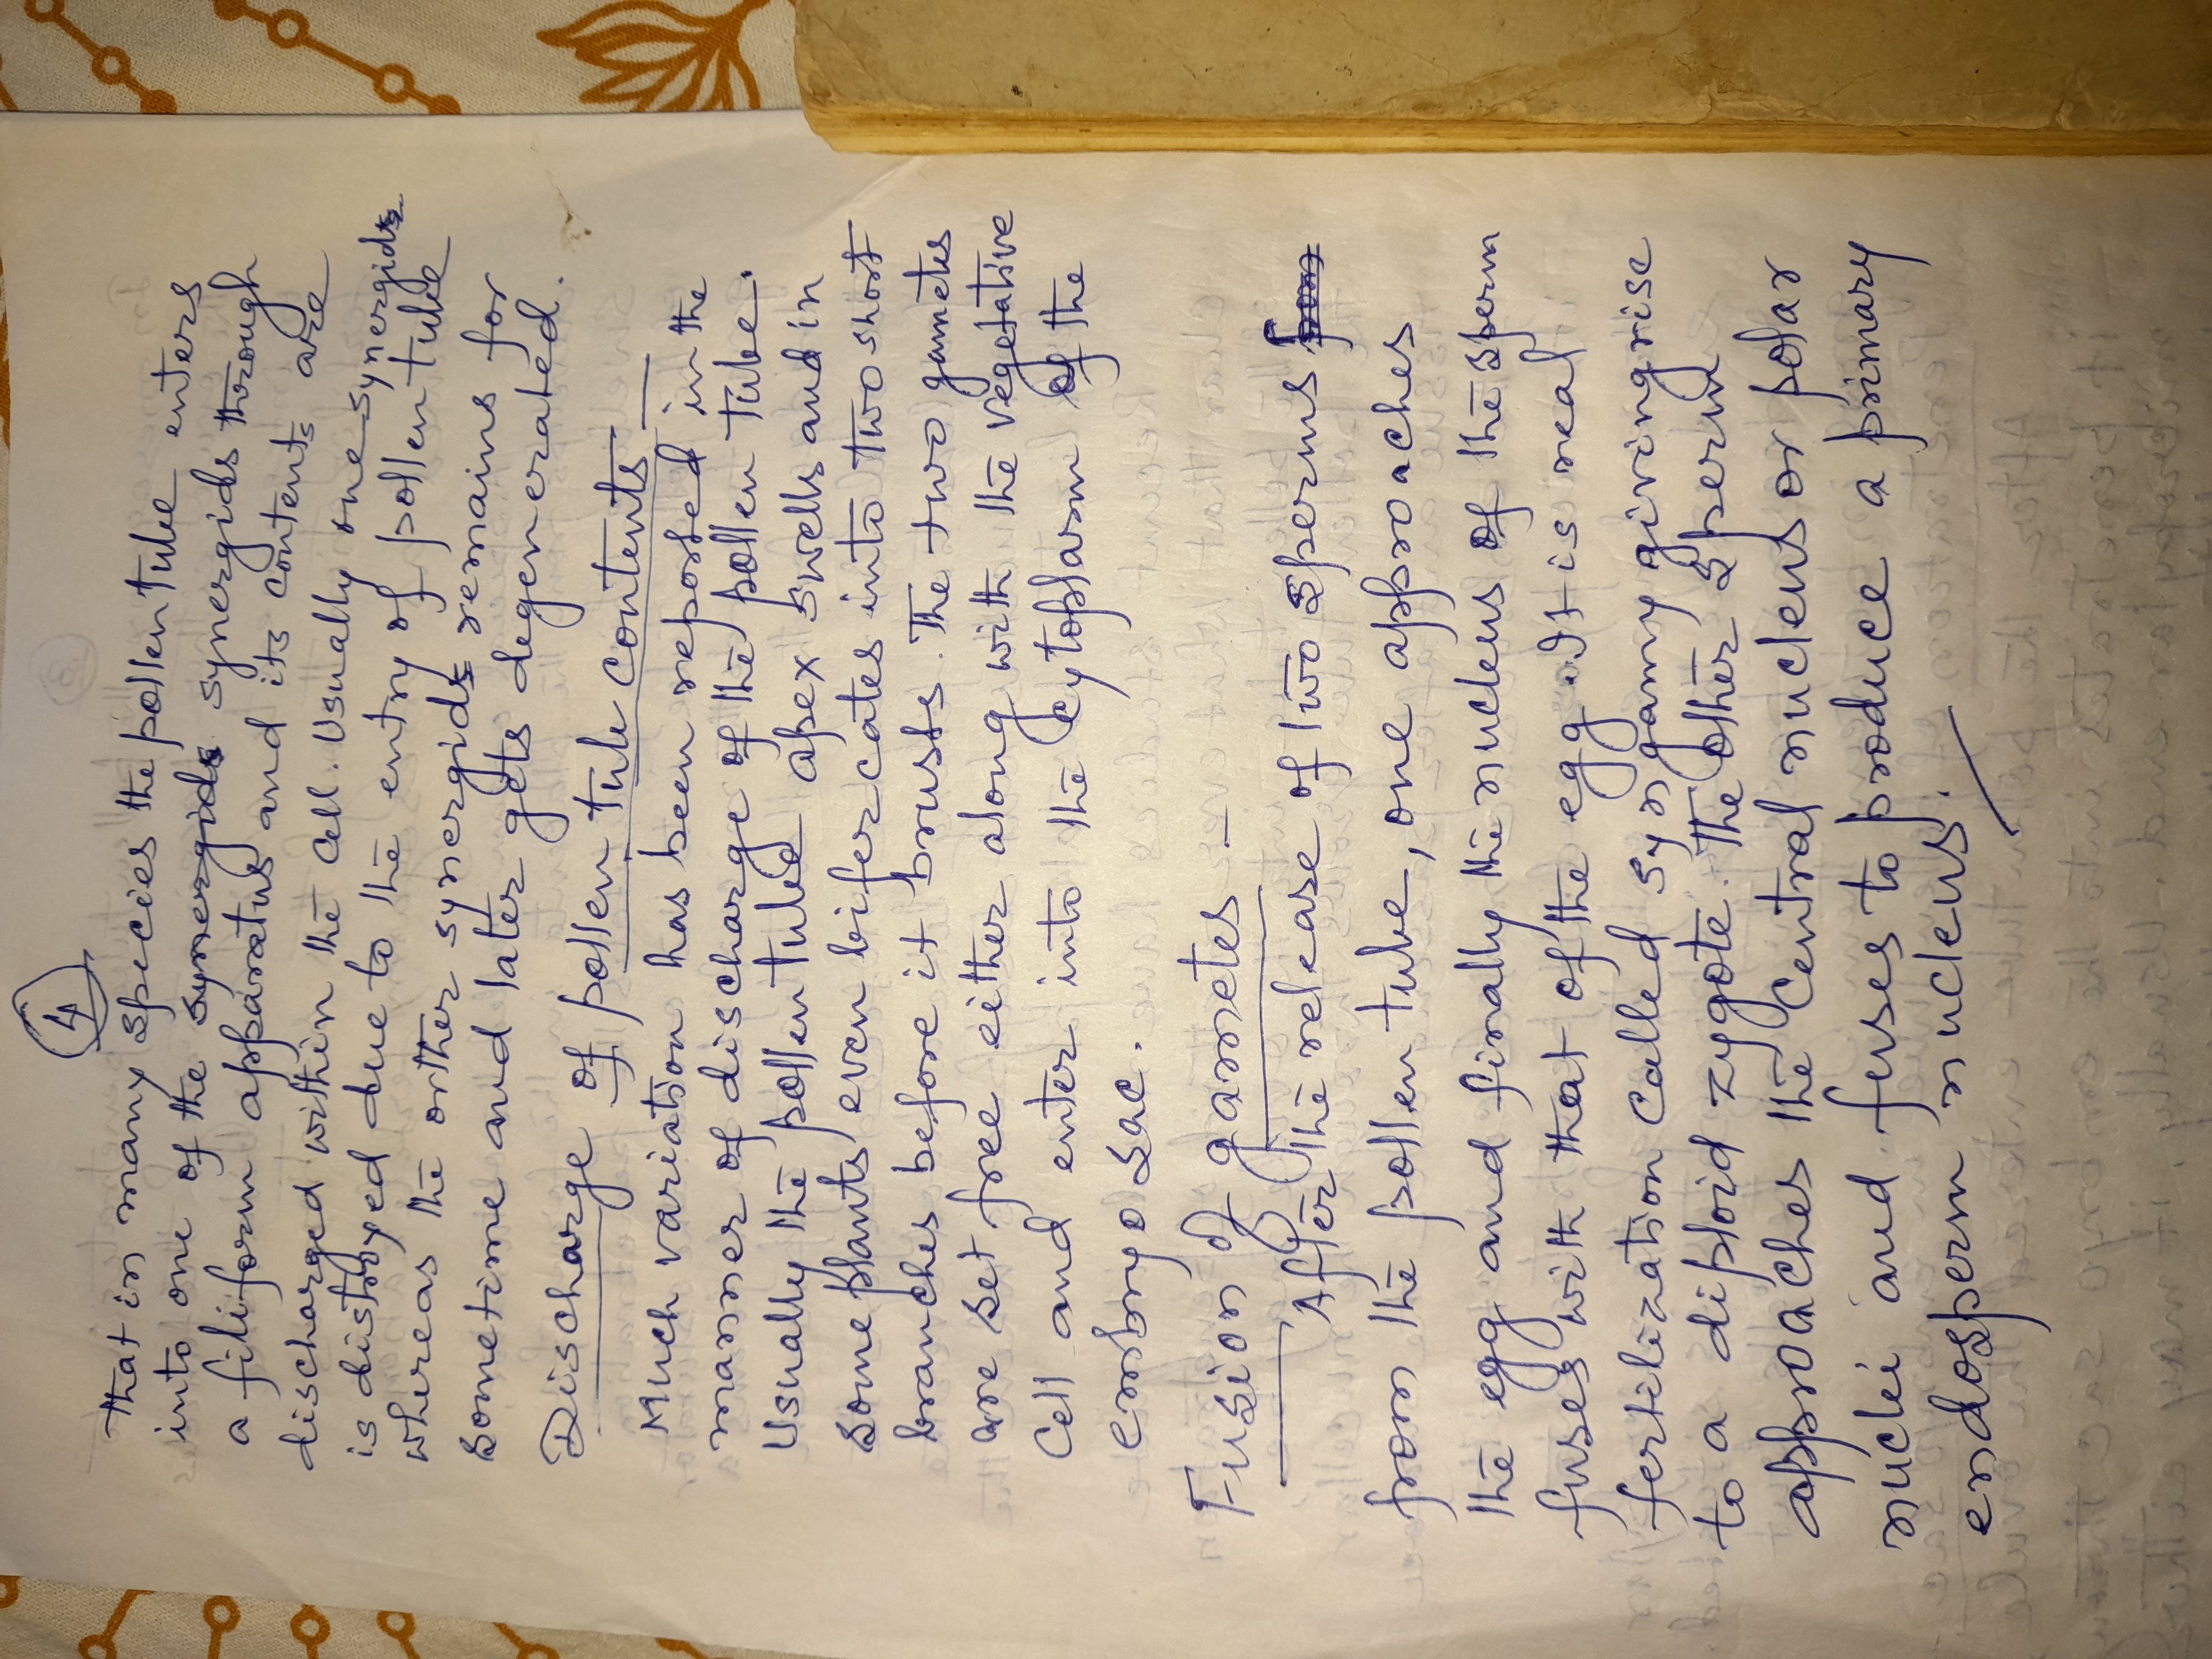 4
that in many species the pollen tube enters
into one of the synergids synergids through
a filiform apparatus and its contents are
discharged within the cell. Usually one synergids
is distroyed due to the entry of pollen tube
whereas the orther synergids remains for
sometime and later gets degenerated.
Discharge of pollen tube contents —
Much variation has been reposted in the
manner of discharge of the pollen tube.
Usually the pollen tubes apex swells and in
some plants even bifercates into two short
branches before it brusts. The two gametes
are set free either along with the vegetative
cell and enter into the cytoplasm of the
embryo sac.
Fusion of gametes —
After the release of two sperms
from the pollen tube, one approaches
the egg and finally the nucleus of the sperm
fuses with that of the egg. It is real
fertilization called syngamy giving rise
to a diploid zygote. The other sperm
approaches the central nucleus or polar
nuclei and fuses to produce a primary
endosperm nucleus.